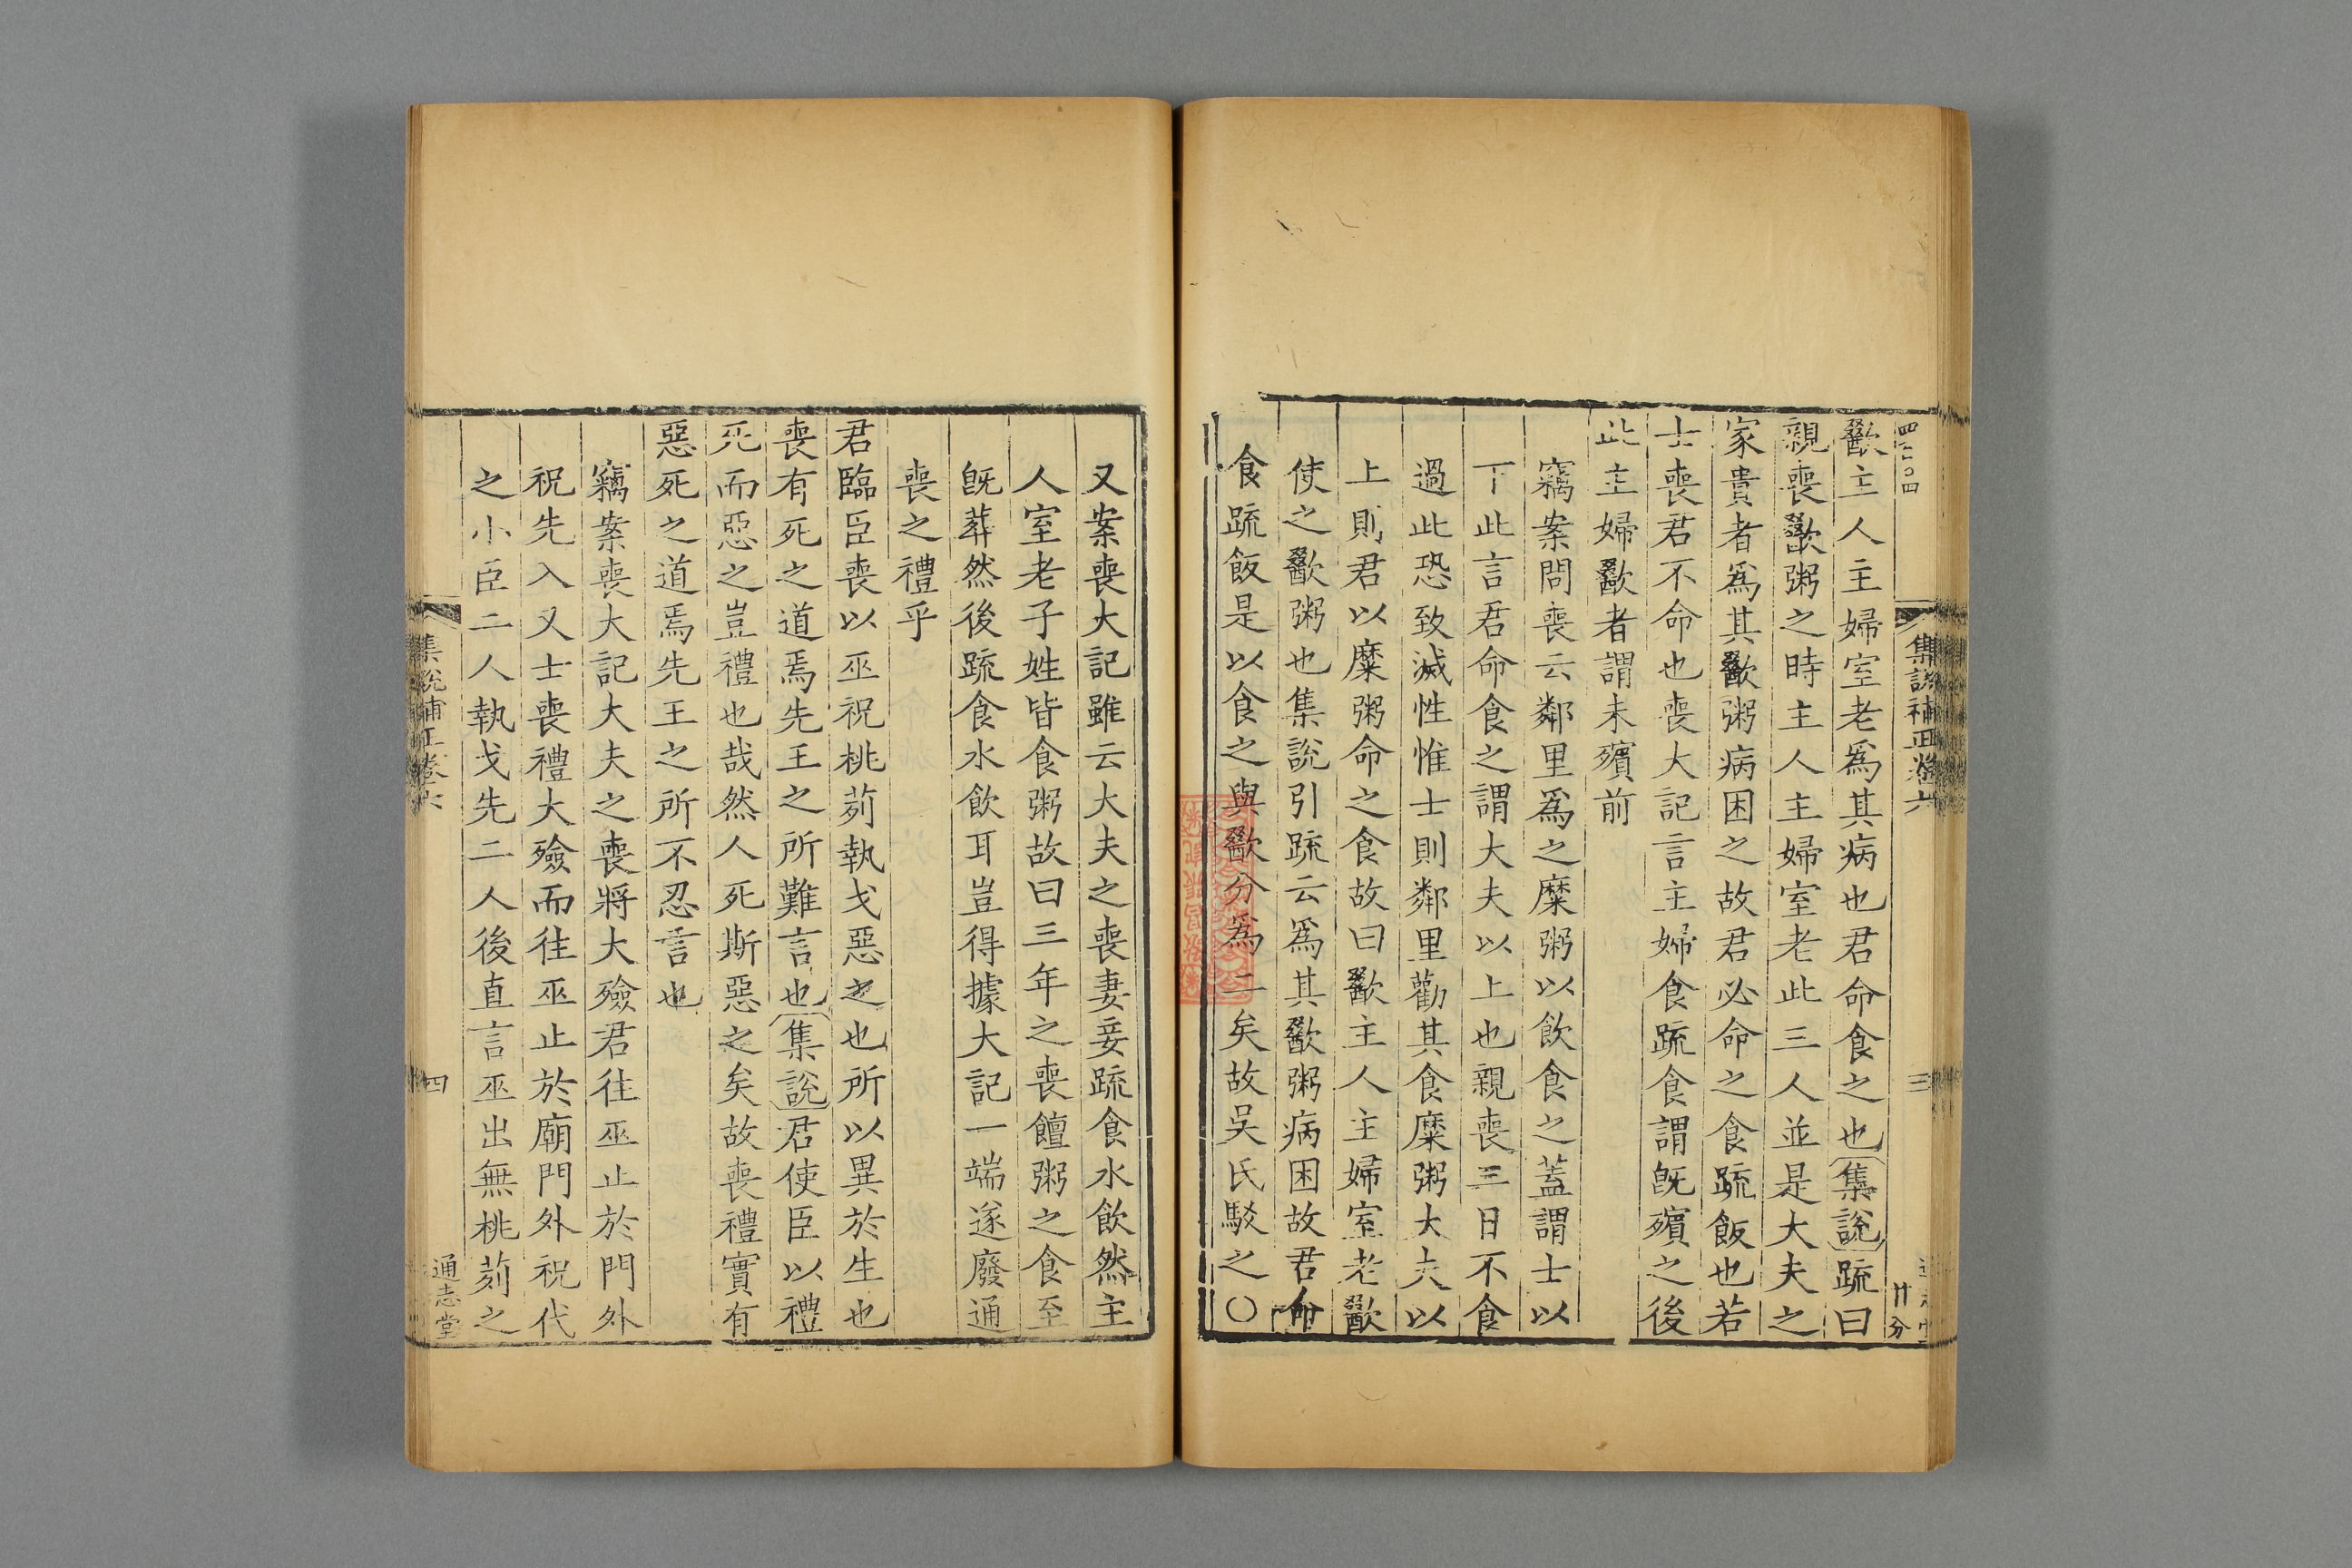 四二〇四
集說補正卷六
三
卄分
歠主人主婦室老爲其病也君命食之也集說疏曰
親喪歠粥之時主人主婦室老此三人並是大夫之
家貴者爲其歠粥病困之故君必命之食疏飯也若
士喪君不命也喪大記言主婦食疏食謂旣殯之後
此主婦歠者謂未殯前
竊案問喪云鄰里爲之糜粥以飲食之蓋謂士以
下此言君命食之謂大夫以上也親喪三日不食
過此恐致滅性惟士則鄰里勸其食糜粥大夫以
上則君以糜粥命之食故曰歠主人主婦室老歠
使之歠粥也集說引疏云爲其歠粥病困故君命
食疏飯是以食之與歠分爲二矣故吳氏駁之〇
又案喪大記雖云大夫之喪妻妾疏食水飲然主
人室老子姓皆食粥故曰三年之喪饘粥之食至
旣葬然後疏食水飲耳豈得據大記一端遂廢通
喪之禮乎
君臨臣喪以巫祝桃茢執戈惡之也所以異於生也
喪有死之道焉先王之所難言也集說君使臣以禮
死而惡之豈禮也哉然人死斯惡之矣故喪禮實有
惡死之道焉先王之所不忍言也
竊案喪大記大夫之喪將大殮君往巫止於門外
祝先入又士喪禮大殮而往巫止於廟門外祝代
之小臣二人執戈先二人後直言巫出無桃茢之
集說補正卷六
四
通志堂